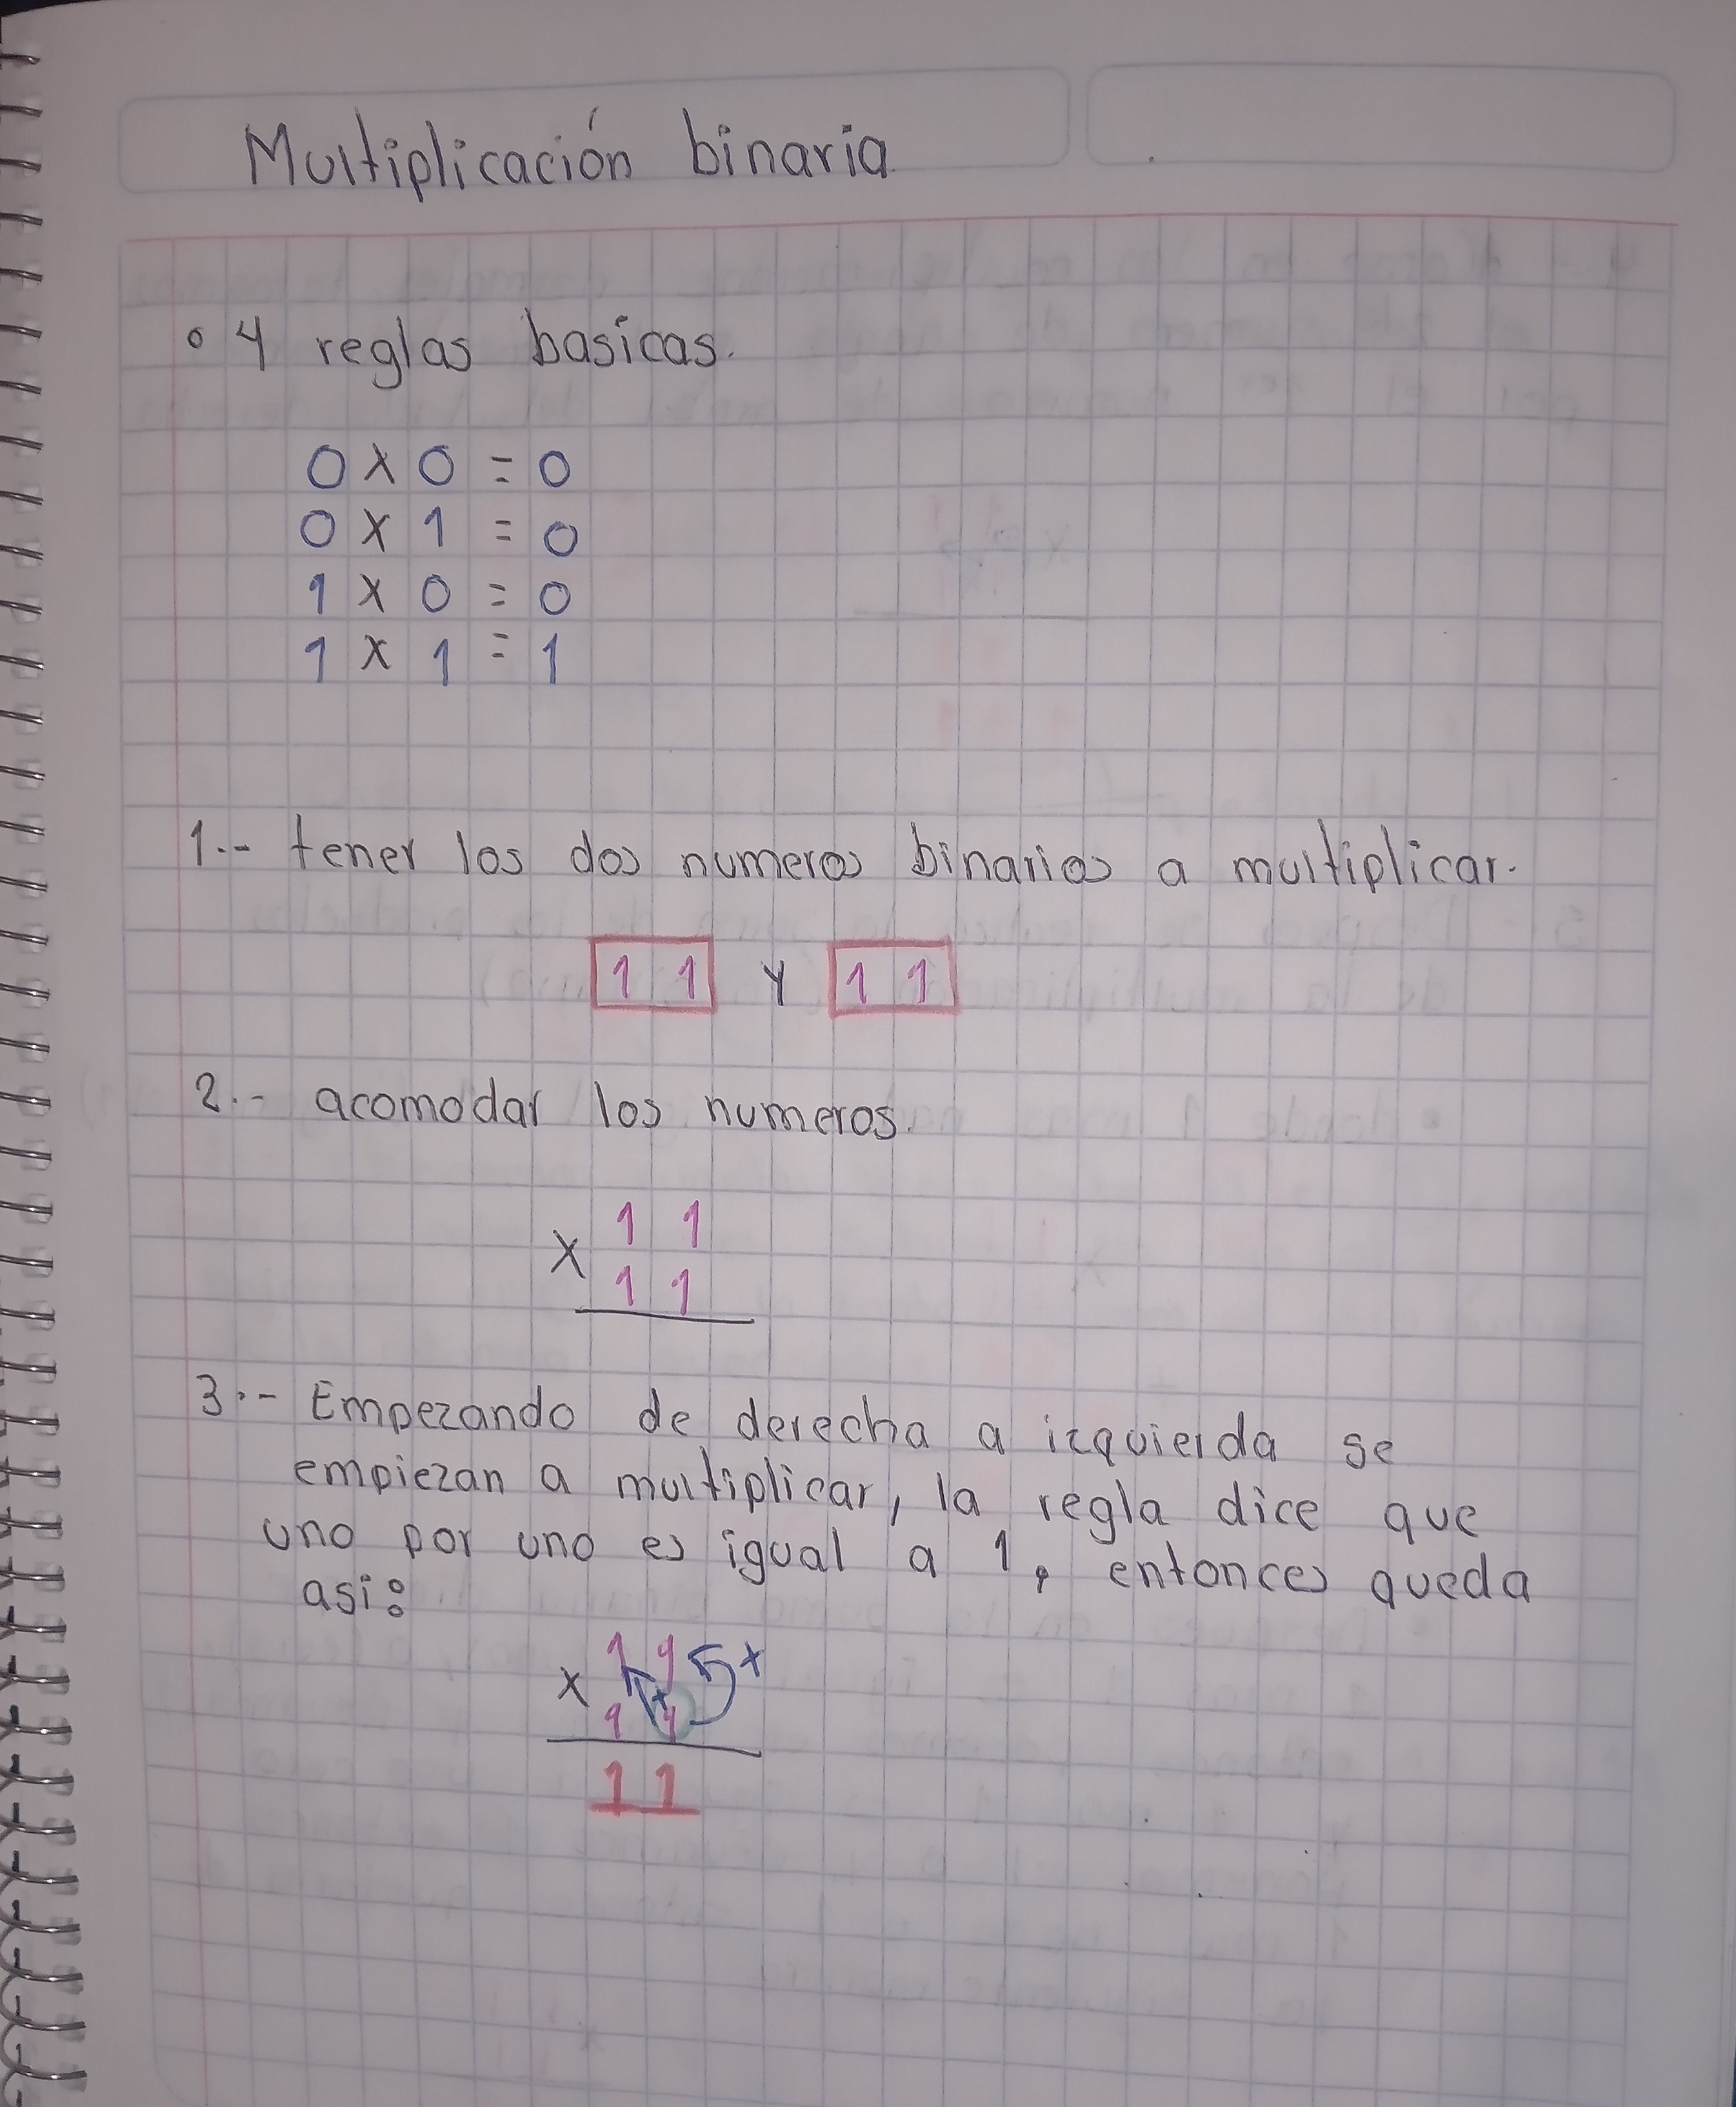 Multiplicación binaria
• 4 reglas basicas.
0 x 0 = 0
0 x 1 = 0
1 x 0 = 0
1 x 1 = 1
1.- tener los dos numeros binarios a multiplicar.
11 y 11
2.- acomodar los numeros.
11
x 11
3.- Empezando de derecha a izquierda se
empiezan a multiplicar, la regla dice que
uno por uno es igual a 1, entonces queda
asi:
11 x
x 11
11